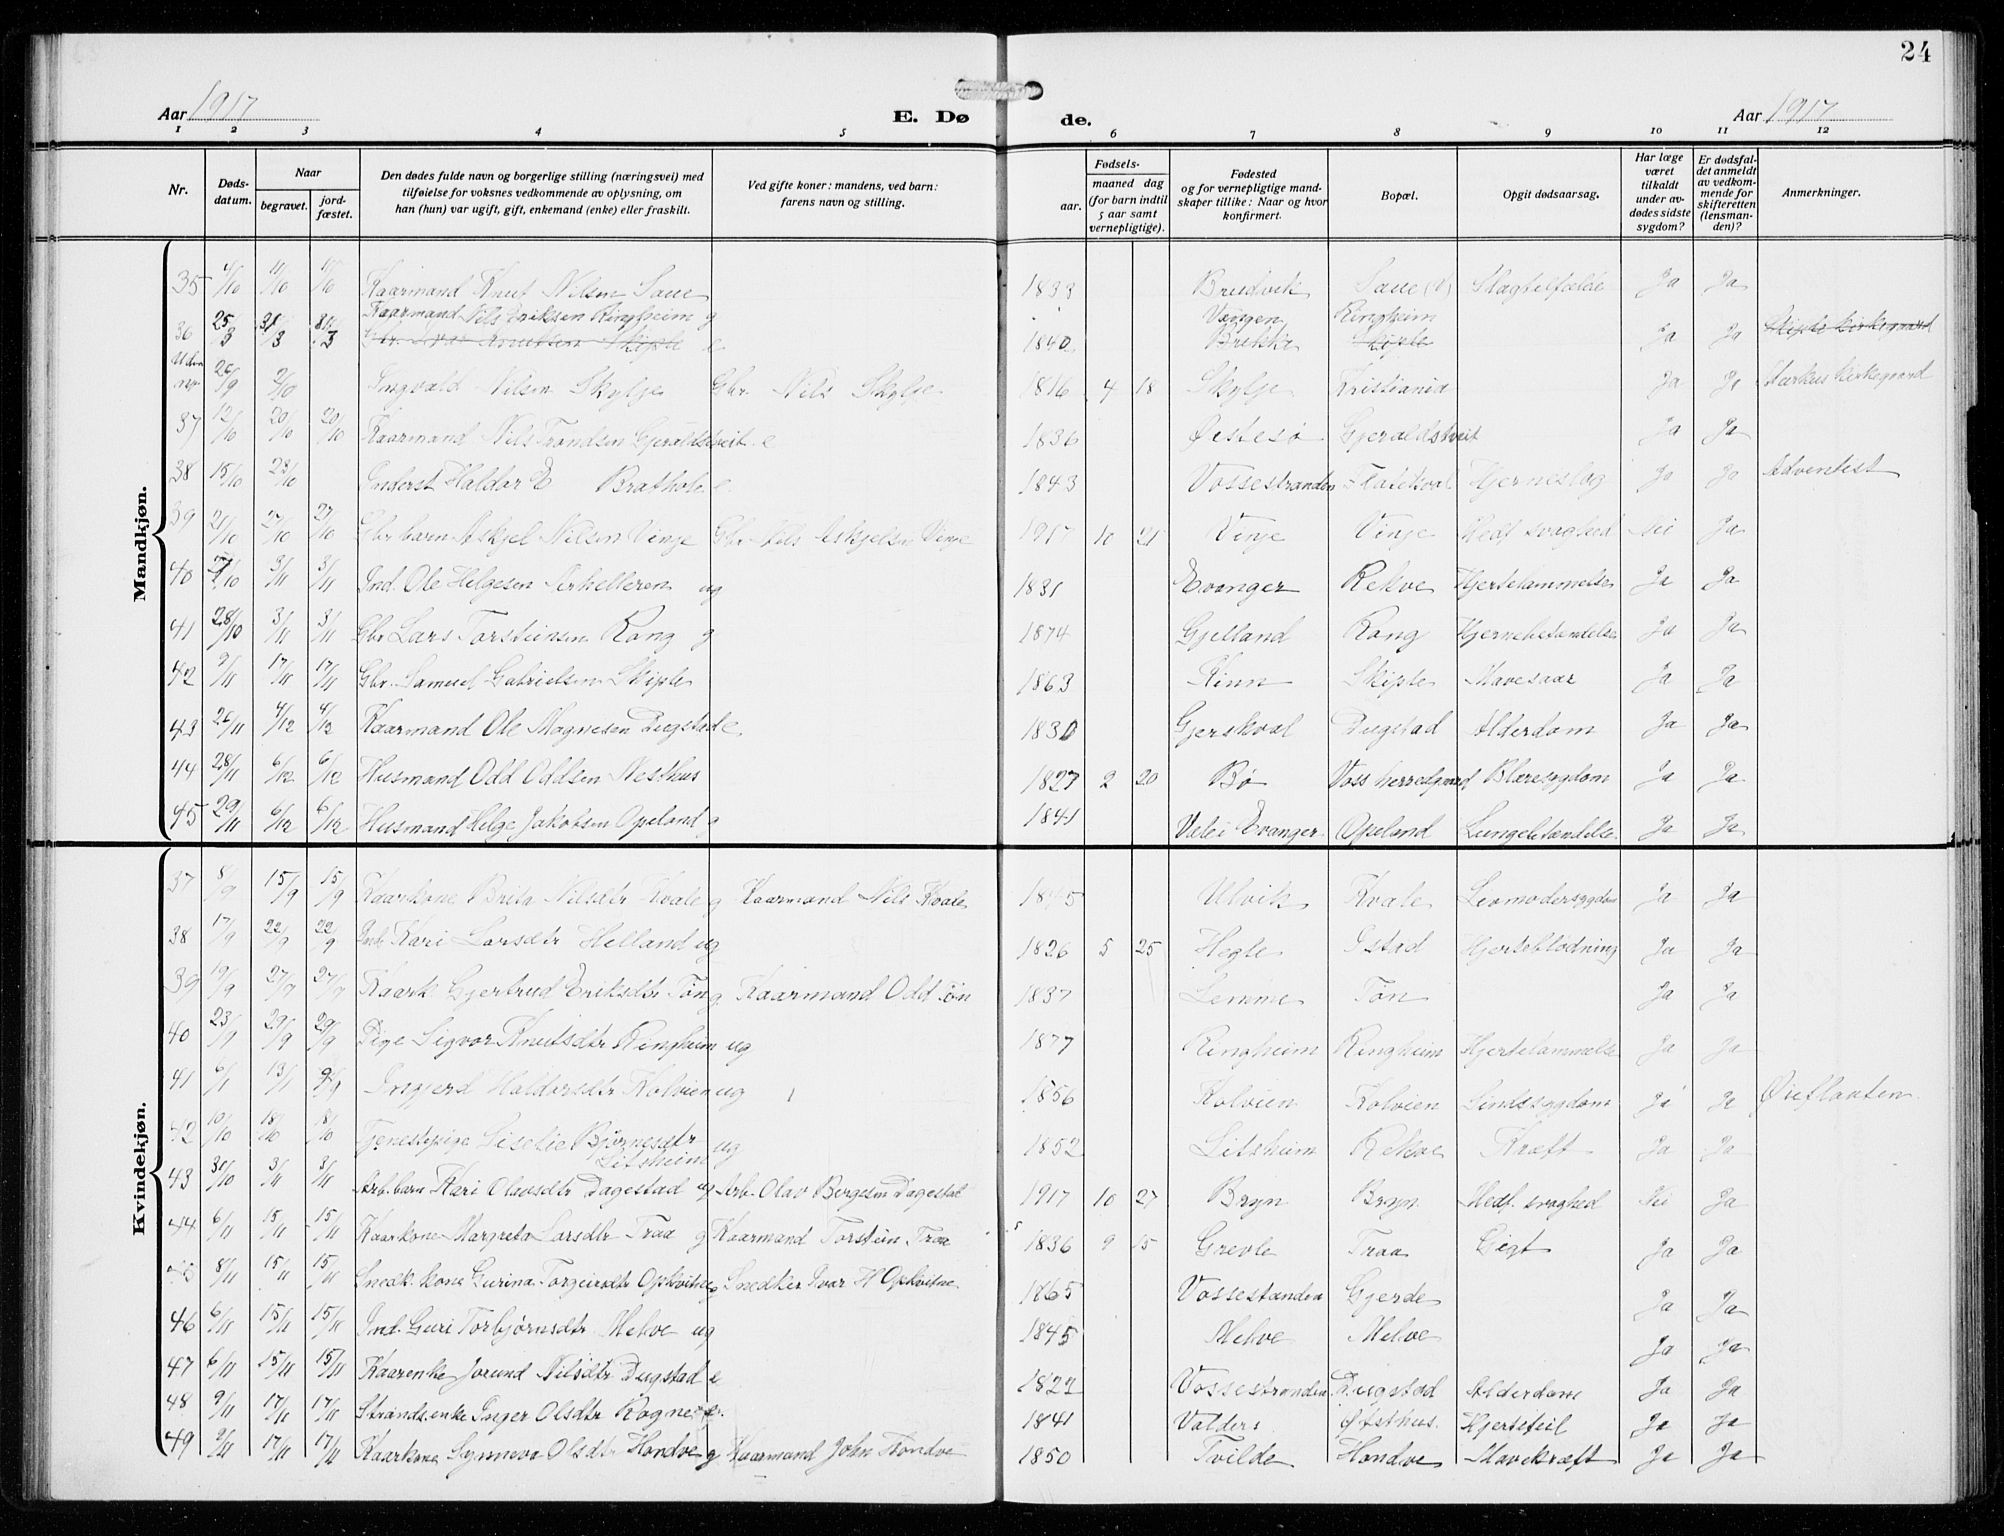 24
Aar 1917
E. Dø
de.
Aar 1917
1 2 3 4 5 6 7 8 9 10 11 12
Nr.
Døds-datum.
Naar
begravet.
jord-fæstet.
Den dødes fulde navn og borgerlige stilling (næringsvei) med tilføielse for voksnes vedkommende av oplysning, om han (hun) var ugift, gift, enkemand (enke) eller fraskilt.
Ved gifte koner: mandens, ved barn: farens navn og stilling.
Fødsels-
aar.
maaned dag (for barn indtil 5 aar samt vernepligtige).
Fødested og for vernepligtige mand-skaper tillike: Naar og hvor konfirmert.
Bopæl.
Opgit dødsaarsag.
Har læge været tilkaldt under av-dødes sidste sygdom?
Er dødsfal-det anmeldt av vedkom-mende for skifteretten (lensman-den)?
Anmerkninger.
Mandkjøn.
35 4/10 11/10 11/10 Kaarmand Knut Nilsen Saue 1833 Bruvik Saue (V) Slagtilfælde Ja Ja
Kaarmand Nils Eriksen Ringheim g Vangen Ringheim
36 25/3 31/3 31/3 Skiple e 1840 Skiple Ja Ja Skiple Kirkegaard
26/9 2/10 Ingvald Nilsen Skylje Gbr. Nils Skylje 1816 4 18 Skylje Kristiania Ja Ja Markus Kirkegaard
37 12/10 20/10 20/10 Kaarmand Nils Trondsen Gjeraldstveit e 1836 Østesø Gjeraldstveit Ja Ja
38 15/10 23/10 Inderst Haldor E Brathole e 1843 Vossestranden Hjerneslag Ja Ja Adventist
39 21/10 27/10 27/10 Gbr barn Askjel Nilsen Vinje Gbr Nils Askjelsen Vinje 1917 10 21 Vinje Vinje Medf svaghed Nei Ja
40 27/10 3/11 3/11 Ind. Ole Helgesen ug 1831 Evanger Rekve Hjertelammelse Ja Ja
41 28/10 3/11 3/11 Gbr Lars Torsteinsen Rong g 1874 Gjelland Rong Hjernebetændelse Ja Ja
42 9/11 17/11 17/11 Gbr. Samuel Gabrielsen Skiple 1863 Kinn Skiple Mavesaar Ja Ja
43 26/11 4/12 4/12 Kaarmand Ole Magnesen Dugstad e. 1830 Gjerskval Dugstad Alderdom Ja Ja
44 28/11 6/12 6/12 Husmand Odd Oddsen Nesthus 1827 2 20 Bø Voss herredgaard Blæresygdom Ja Ja
45 29/11 6/12 6/12 Husmand Helge Jakobsen Opeland g 1841 Evanger. Opeland Lungebetændelse. Ja Ja
Kvindekjøn.
37 8/9 15/9 15/9 Kaarkone Brita Nilsdtr Kvale g Kaarmand Nils Kvale 1845 Ulvik Kvale Livmodersygdom Ja Ja
38 17/9 22/9 22/9 Ind. Kari Larsdtr Helland ug 1826 5 25 Hegle Istad Hjerteblødning Ja Ja
39 19/9 27/9 27/9 Kaark Gjertrud Eriksdtr Tøn g Kaarmand Odd Tøn 1837 Lemme Tøn Ja Ja
40 23/9 29/9 29/9 Pige Sigvor Knutsdtr Ringheim ug 1877 Ringheim Ringheim Hjertelammelse Ja Ja
41 6/1 13/1 Ingjerd Haldorsdtr Kolvien ug 1856 Kolvien Kolvien Sindssygdom Ja Ja Øieflaaten.
42 10/10 18/10 18/10 Tjenestepige Lisetie Bjørnesdtr ug 1852 Litsheim Rekve Kræft Ja Ja
Litsheim
43 31/10 3/11 3/11 Arb. barn Kari Olavsdtr Dagestad ug Arb. Olav Bergesen Dagestad 1917 10 27 Bryn Bryn Medf. svaghed Nei Ja
44 6/11 15/11 15/11 Kaarkone Margreta Larsdtr Traa g Kaarmand Torstein Traa 1836 9 15 Grevle Traa Gigt Ja Ja
45 8/11 15/11 15/11 Snedk. kone Gurina Torgeirsdtr Opkvitne g Snedker Ivar H Opkvitne 1865 Vossestanden Gjerde Ja Ja
46 6/11 15/11 15/11 Ind. Guri Torbjørnsdtr Melve ug 1845 Melve Melve Ja Ja
47 6/11 15/11 15/11 Kaarenke Jorund Nilsdtr Dugstad e 1827 Vossestranden Dugstad Alderdom Ja Ja
48 9/11 17/11 17/11 Strands.enke Inger Olsdtr Rogne e. 1841 Valders Østhus. Hjertefeil Ja Ja
49 9/11 17/11 17/11 Kaarkone Synneva Olsdtr Hondve g Kaarmand John Hondve 1850 Tvilde Hondve Mavekræft Ja Ja